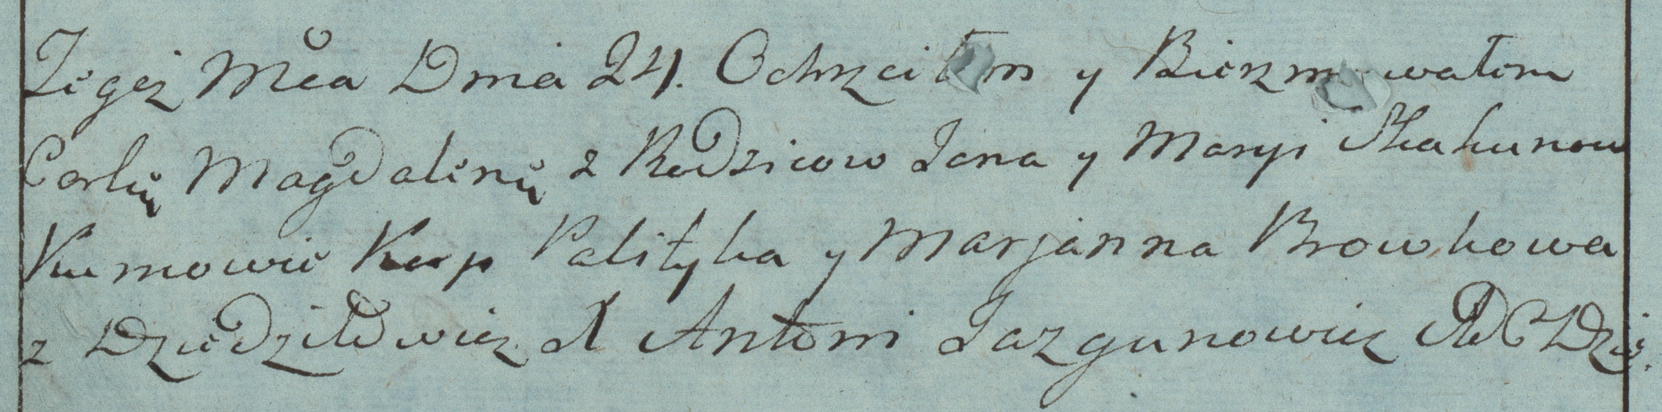 Tegoż Mca Dnia 24. Ochrzciłem y Bierzmowałem
Corkę Magdalenę z Rodzicow Jana y Maryi Skakunow
Kumowie Karp Palityka y Marjanna Browkowa
z Dziedziłowicz X Antoni Jazgunowicz